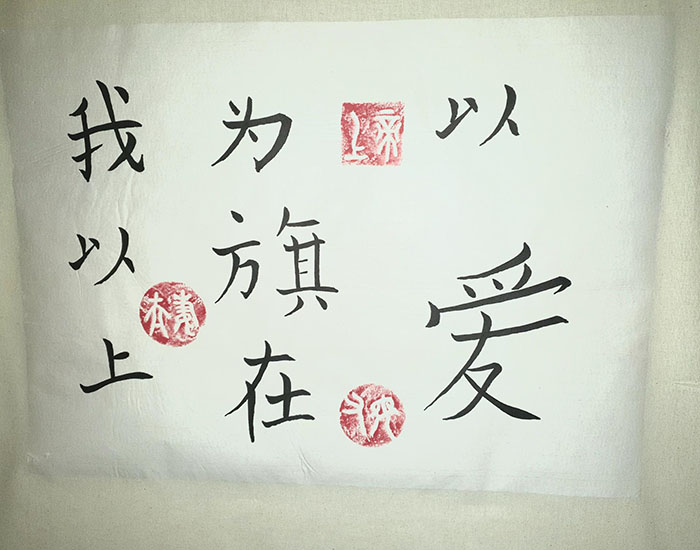 以爱
上帝
为旗在
我以上